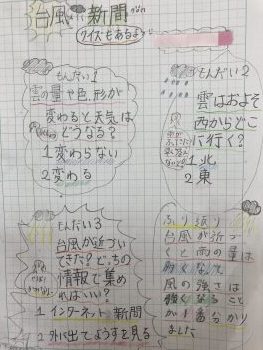 台風新聞
クイズもあるよ
もんだい1
雲の量や色、形が
変わると天気は
どうなる?
1 変わらない
2 変わる
もんだい2
雲はおよそ
西からどこ
に行く?
1 北
2 東
もんだい3
台風が近づい
てきた?どっちの
情報で集め
ればいい?
1 インターネット 新聞
2 外に出てようすを見る
ふり返り
台風が近づ
くと雨の量は
多くなって
風の強さは
強くなること
が1番分かり
ました